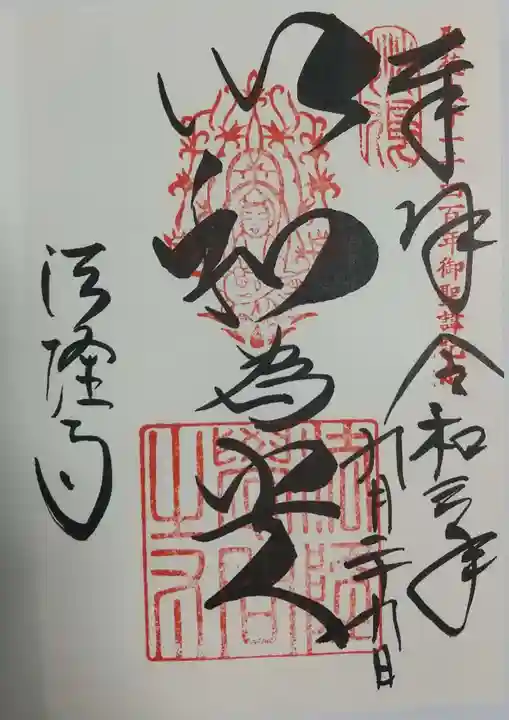 奉拜
令和三年
九月二十九日
百年御聖諱
以和為貴
法隆寺